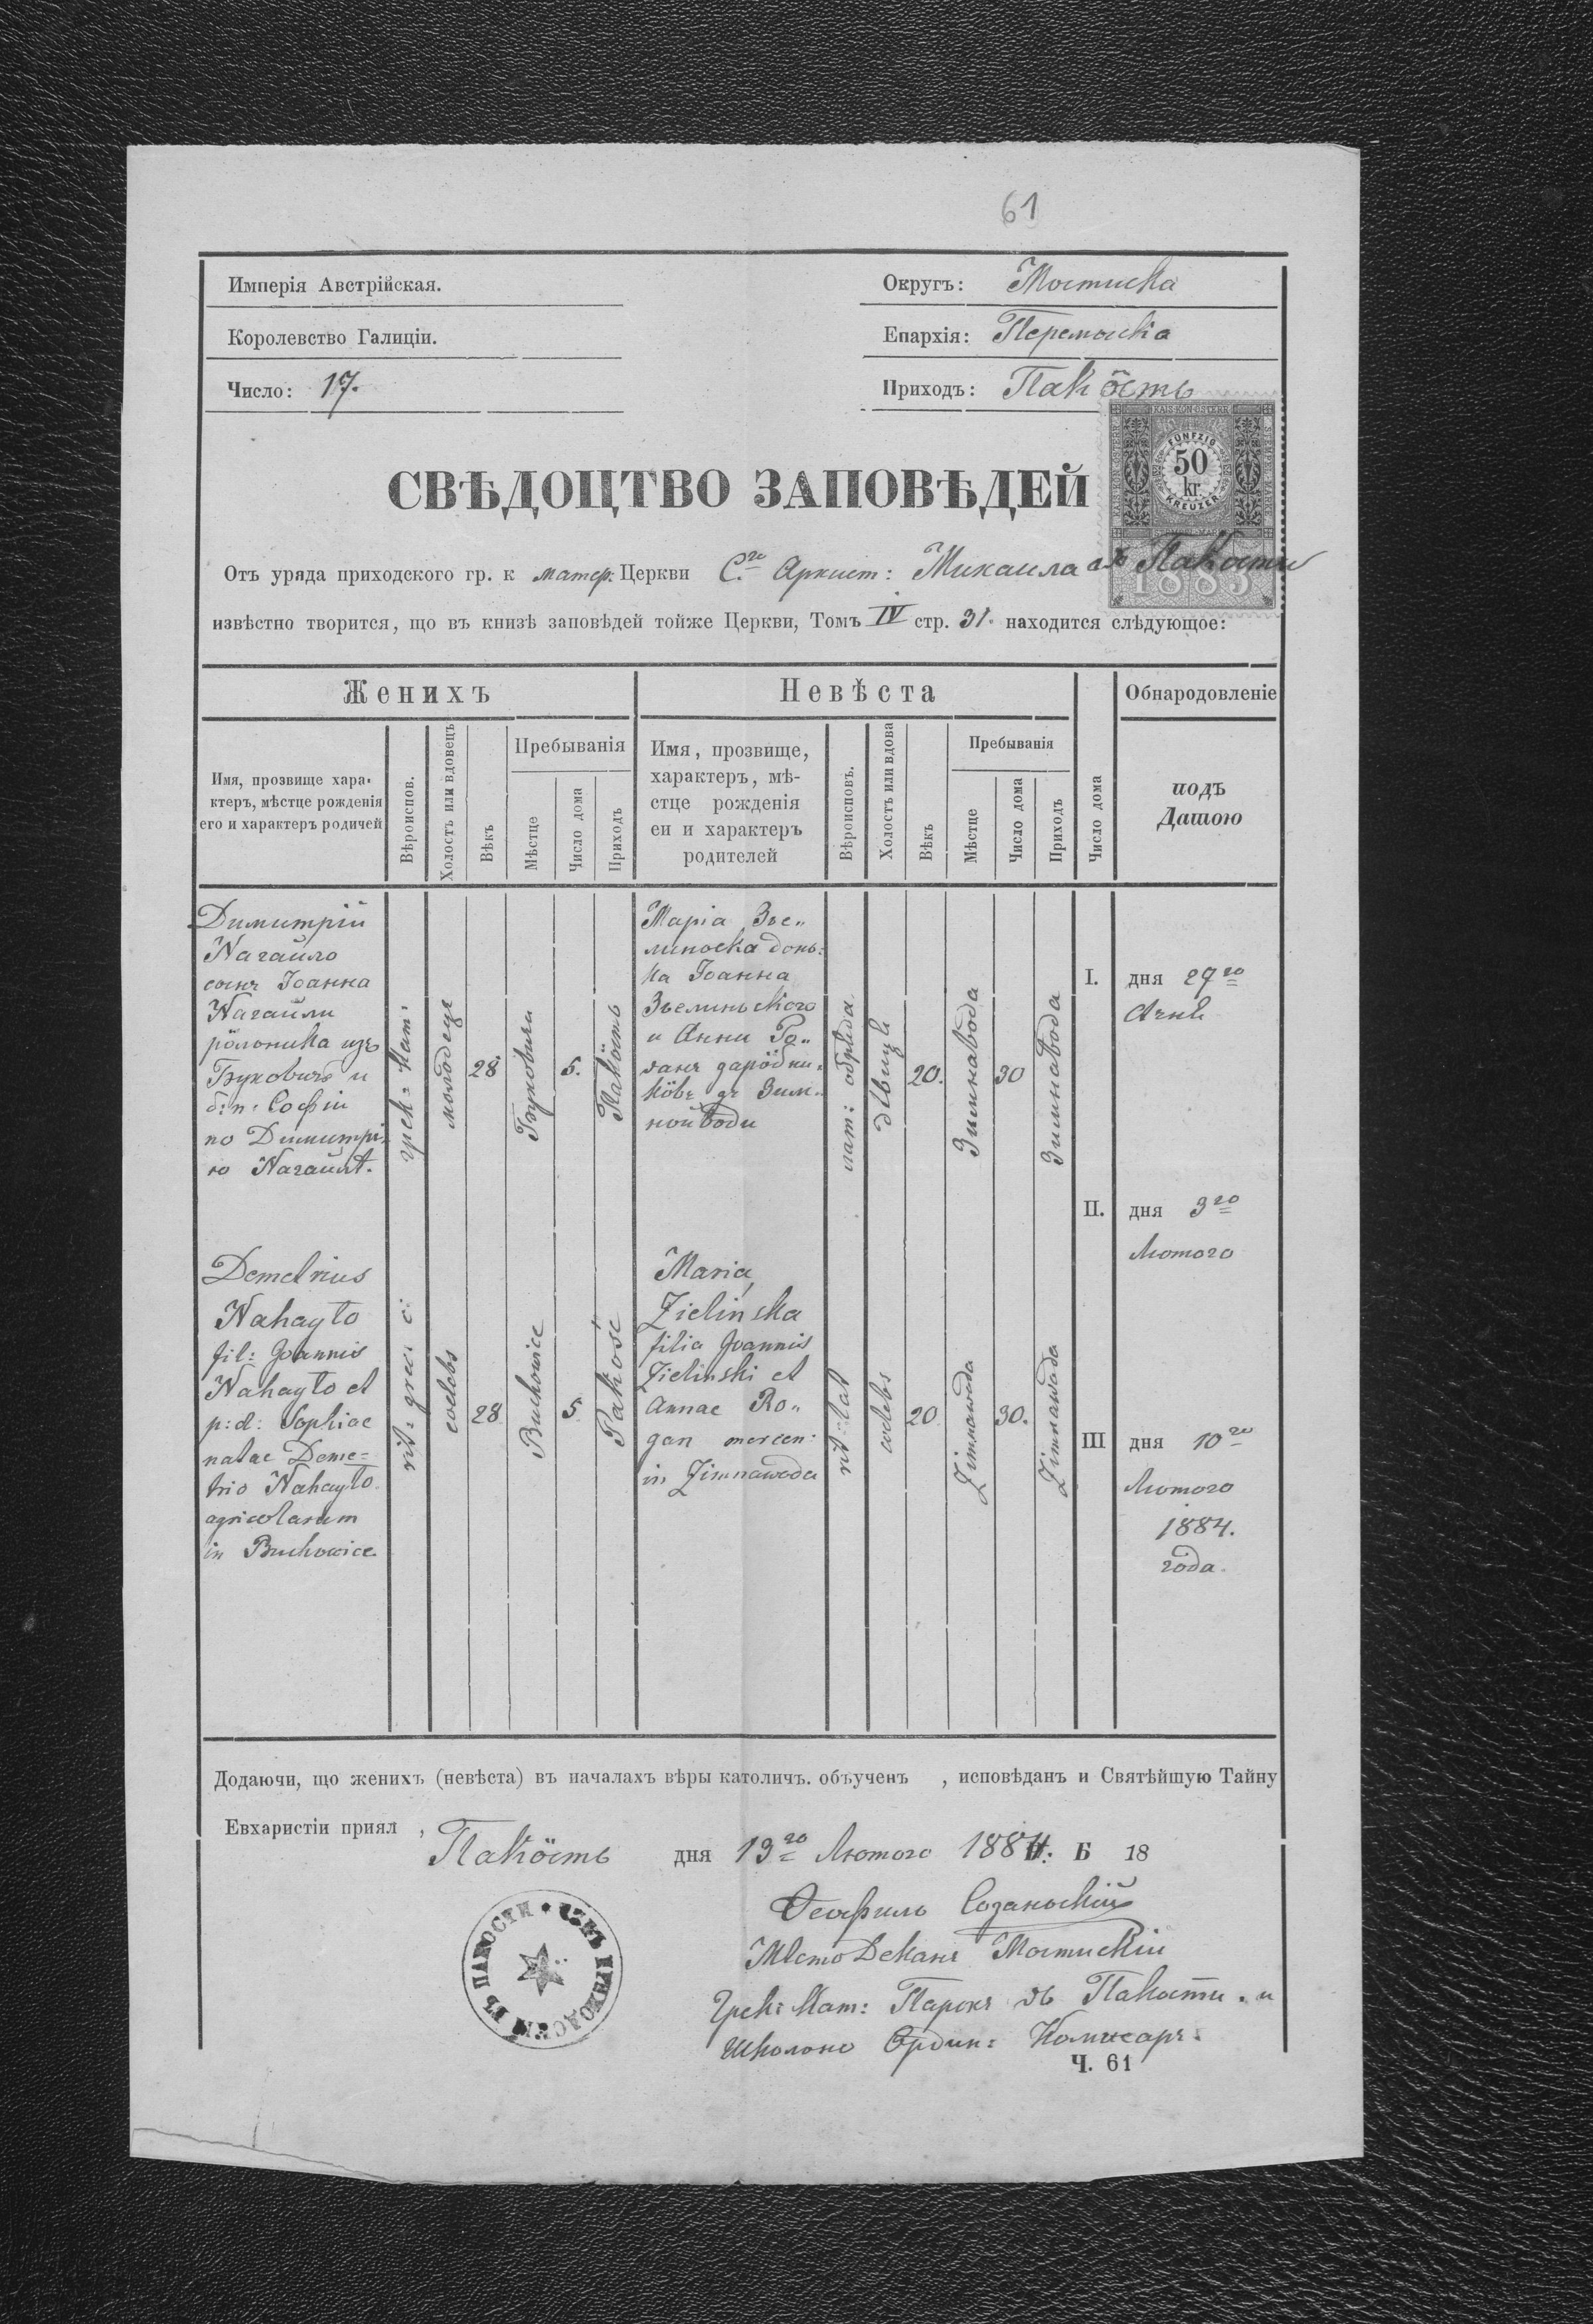 61
Имперія Австрійская.
Округъ: Мостиска
Королевство Галиціи.
Епархія: Перемыскa
Число: 17.
Приходъ: Пакôсть
KAIS. KÖN. ÖSTERR.
FÜNFZIG
50
kr.
KREUZER
1883
СВѢДОЦТВО ЗАПОВѢДЕЙ
Отъ уряда приходского гр. к матер. Церкви С.го Архист: Михаила въ Пакости
извѣстно творится, що въ книзѣ заповѣдей тойже Церкви, Томъ IV стр. 31. находится слѣдующое:
Женихъ
Невѣста
Обнародовленіе
Имя, прозвище хара-
ктеръ, мѣстце рожденія
его и характеръ родичей
Вѣроиспов.
Холостъ или вдовець
Вѣкъ
Пребыванія
Мѣстце
Число дома
Приходъ
Имя, прозвище,
характеръ, мѣ-
стце рожденія
еи и характеръ
родителей
Вѣроисповъ.
Холостъ или вдова
Вѣкъ
Пребыванія
Мѣстце
Число дома
Приходъ
Число дома
подъ
Датою
Димитрій
Нагайло
сынъ Іоанна
Нагайли
рôльника изъ
Буховичъ и
б: п: Софіи
по Димитрі-
ю Нагайлѣ.
грек: кат:
молодець
28
Буховичи
5.
Пакôсть
Марія Зѣ„
линьска донь:
ка Іоанна
Зѣлиньского
и Анни Ро„
ганъ зарôбни-
кôвъ зъ Зим-
ной води
лат: обряда
дѣвиця
20.
Зимнавода
30
Зимнавода
I. дня 27го
Січня
II. дня 3го
Лютого
Demetrius
Nahayło
fil: Joannis
Nahayło et
p: d: Sophiae
natae Deme=
trio Nahayło
agricolarum
in Buchowice
rit: graec: c:
coelebs
28
Buchowice
5
Pakość
Maria
Zielińska
filia Joannis
Zieliński et
Annae Ro„
gan mercen:
in Zimnawoda
rit: lat
coelebs
20
Zimnawoda
30.
Zimnawoda
III дня 10го
Лютого
1884.
года.
Додаючи, що женихъ (невѣста) въ началахъ вѣры католичъ. объученъ , исповѣданъ и Святѣйшую Тайну
Евхаристіи приял ,
Пакôсть дня 13го Лютого 1884. Б 18
Теофиль Созаньскій
Мѣстодеканъ Мостискій
Грек: Кат: Парохъ въ Пакости. и
школьно Ордин: Комисаръ.
ПРИХОДСКІЙ ВЪ ПАКОСТИ
Ч. 61